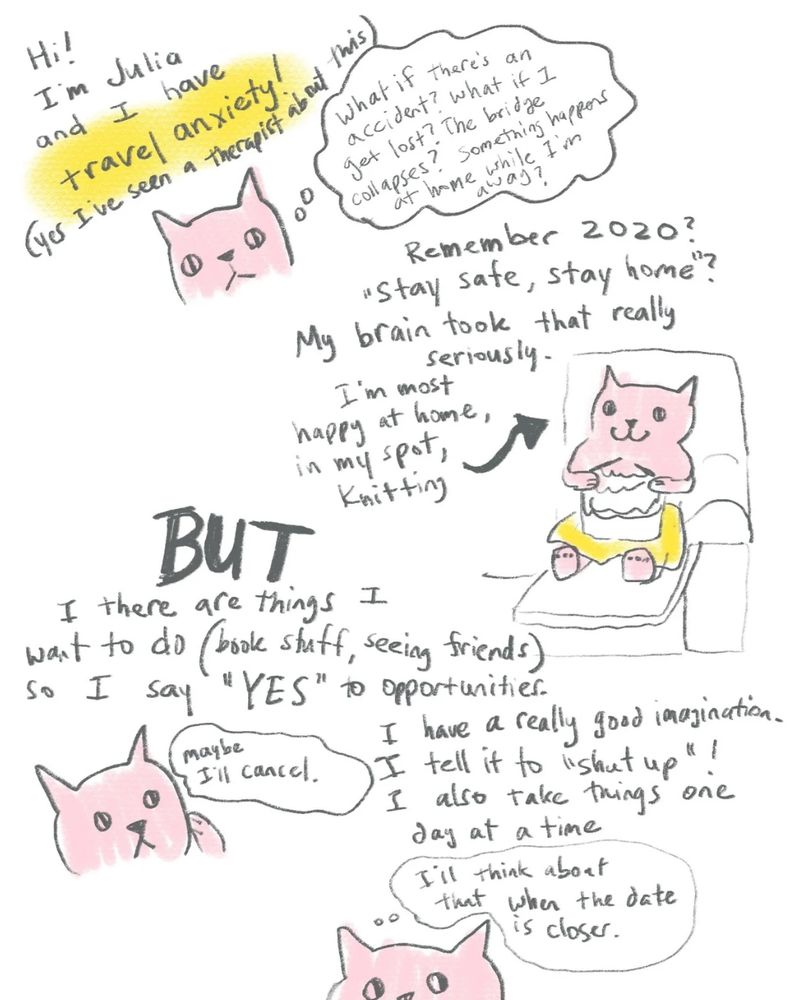 Hi!
I'm Julia
and I have
travel anxiety!
(yes I've seen a therapist about this)
What if there's an
accident? What if I
get lost? The bridge
collapses? Something happens
at home while I'm
away?
Remember 2020?
"Stay safe, stay home"?
My brain took that really
seriously.
I'm most
happy at home,
in my spot,
Knitting
BUT
I there are things I
want to do (book stuff, seeing friends)
so I say "YES" to opportunities.
maybe
I'll cancel.
I have a really good imagination.
I tell it to "shut up"!
I also take things one
day at a time
I'll think about
that when the date
is closer.